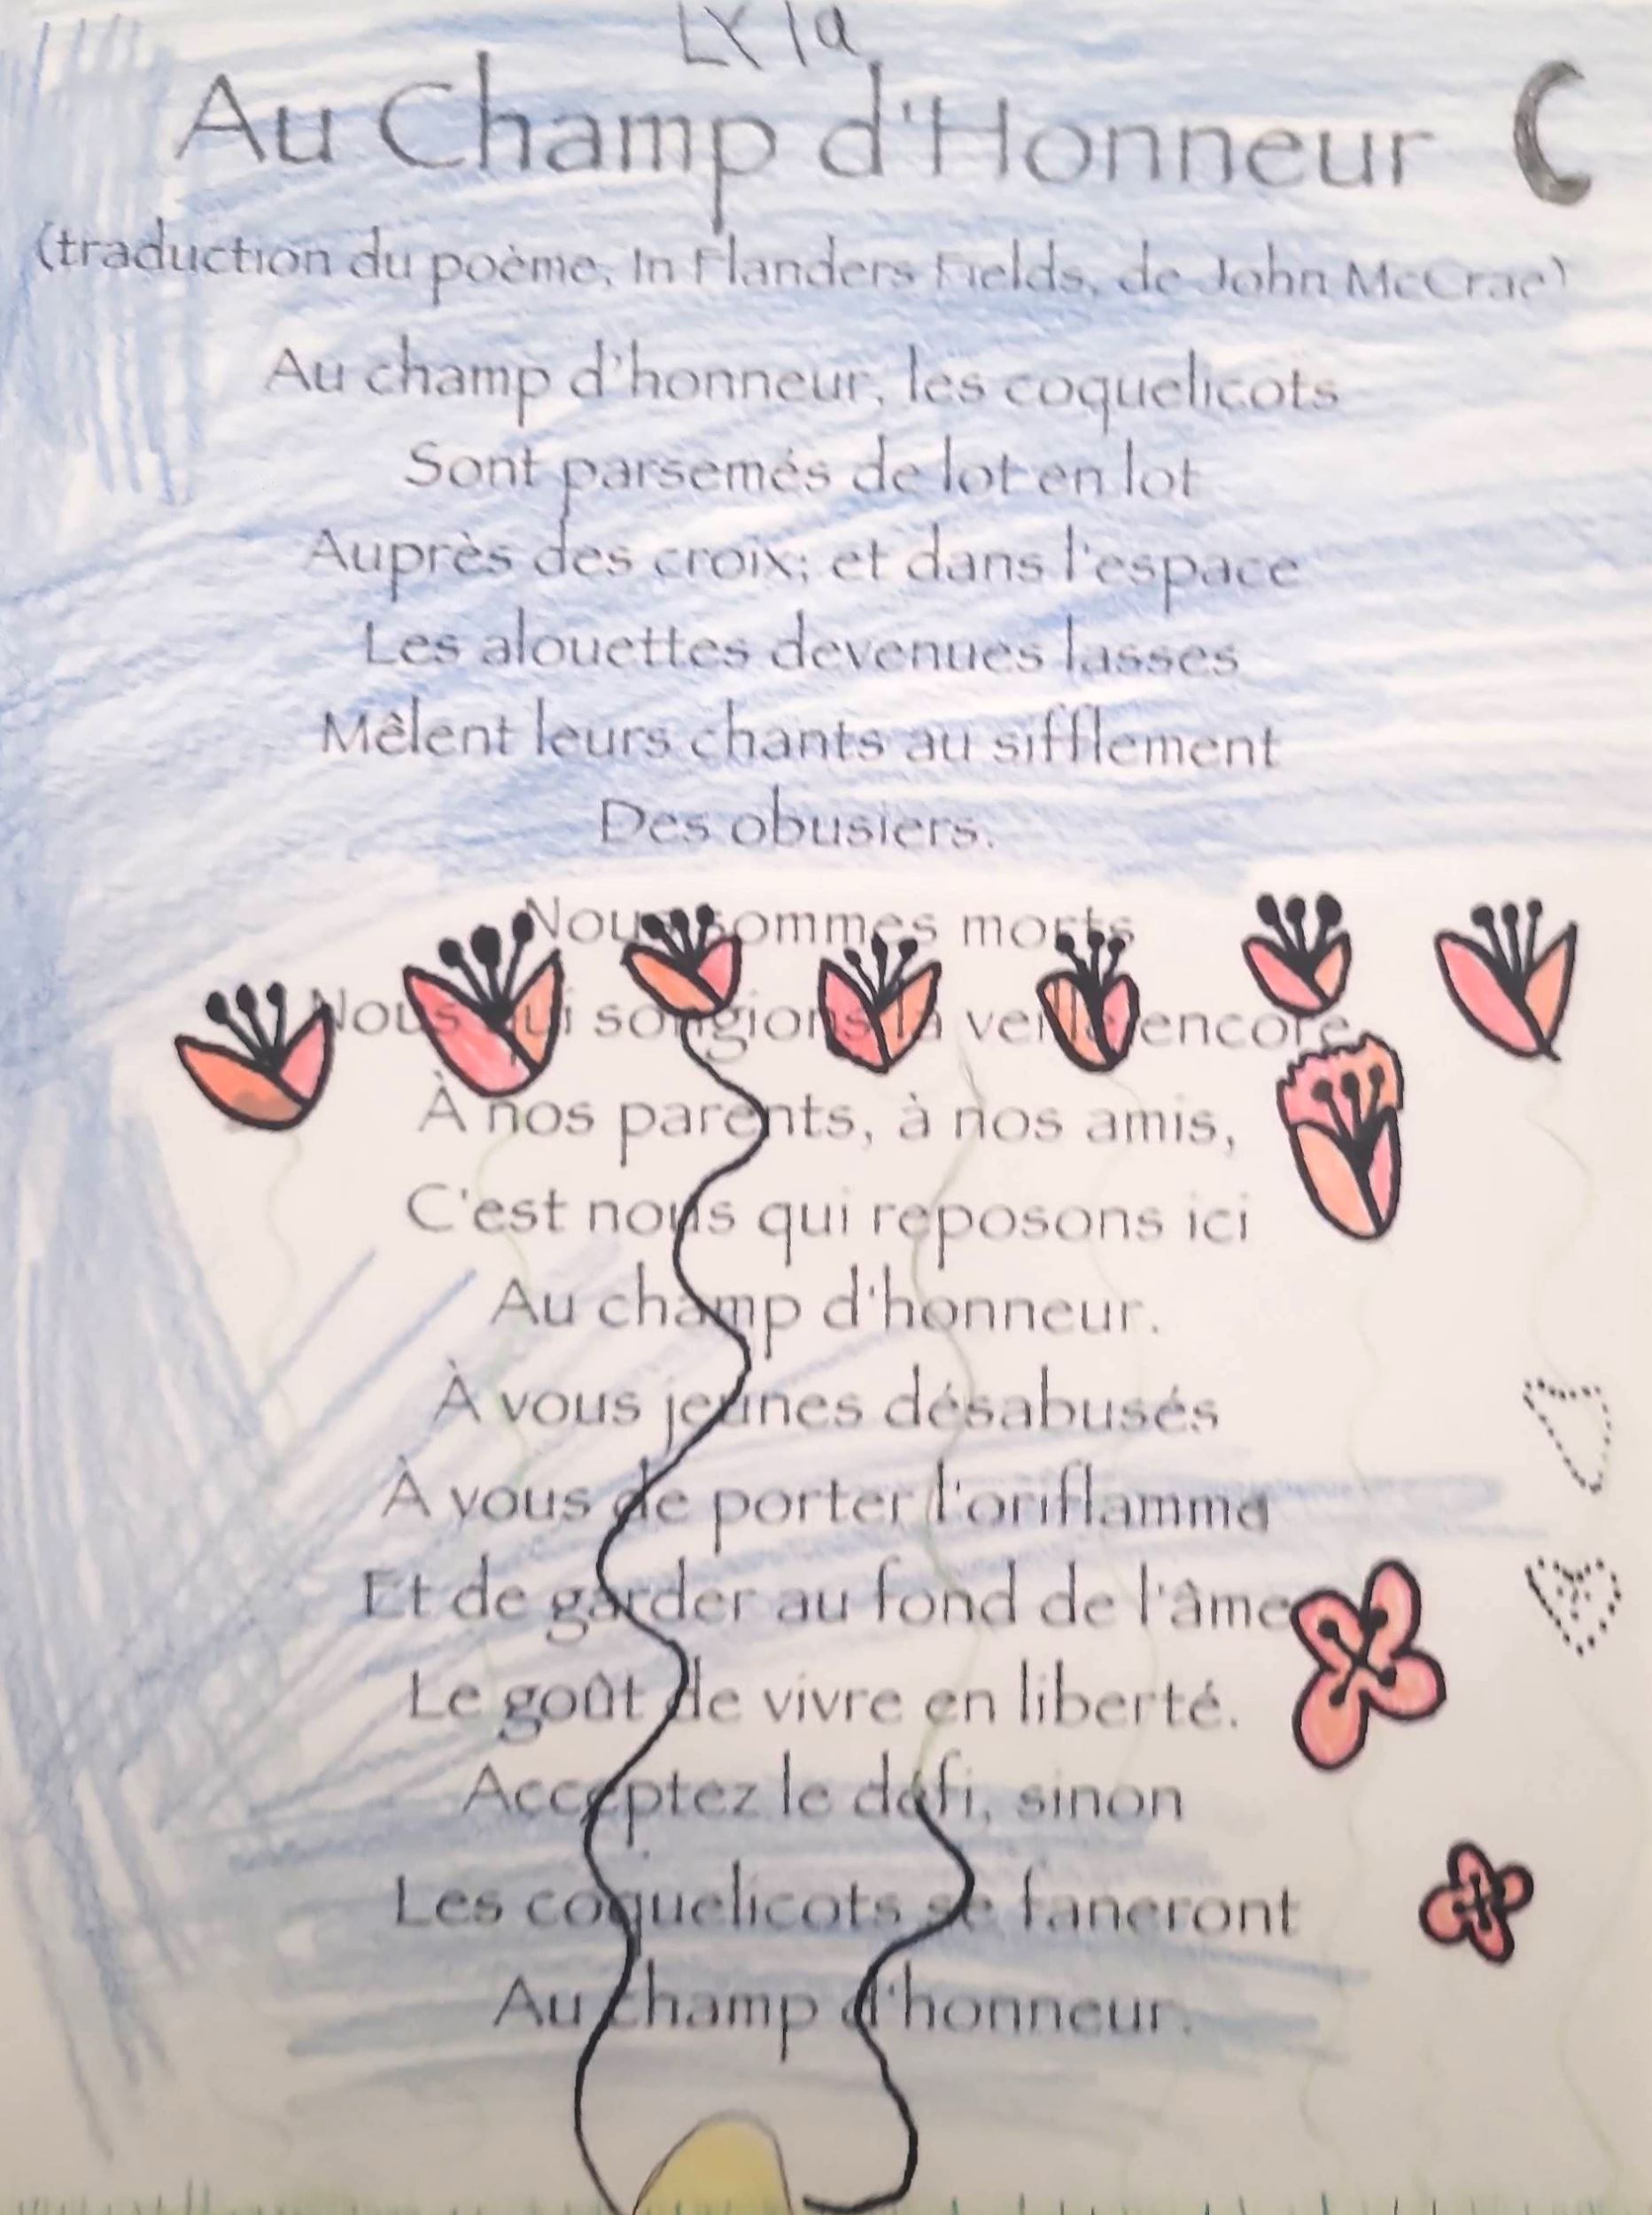 Lyla
Au Champ d'Honneur
(traduction du poème, In Flanders Fields, de John McCrae)
Au champ d'honneur, les coquelicots
Sont parsemés de lot en lot
Auprès des croix; et dans l'espace
Les alouettes devenues lasses
Mêlent leurs chants au sifflement
Des obusiers.
Nous sommes morts
Nous qui songions la veille encore
À nos parents, à nos amis,
C'est nous qui reposons ici
Au champ d'honneur.
À vous jeunes désabusés
À vous de porter l'oriflamme
Et de garder au fond de l'âme
Le goût de vivre en liberté.
Acceptez le défi, sinon
Les coquelicots se faneront
Au champ d'honneur.